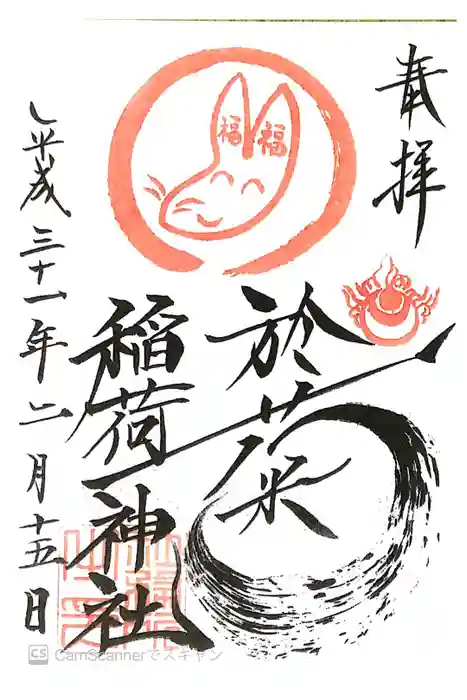 奉拝
於菊
稲荷神社
平成三十一年二月十五日
福 福
CS CamScannerでスキャン